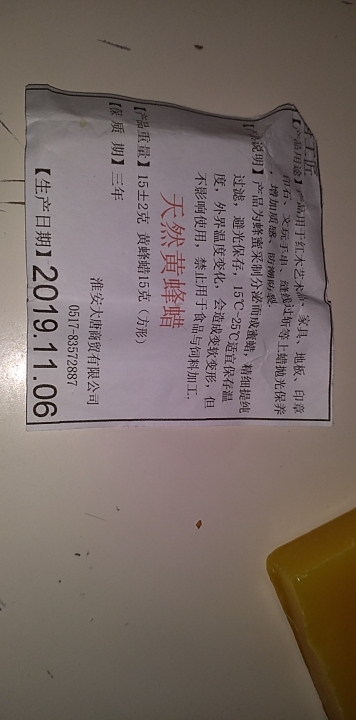 工匠
【产品用途】产品用于红木艺术品、家具、地板、印章
印石、文玩手串、缝线过斩等上蜡抛光保养
,增加质感、防潮防裂
说明】产品为蜂蜜采制分泌而成蜜蜡，精细提纯
过滤，避光保存，15℃-25℃适宜保存温
度，外界温度变化，会造成变软变形，但
不影响使用，禁止用于食品与饲料加工.
天然黄蜂蜡
【产品重量】15±2克 黄蜂蜡15克（方形）
【保 质 期】三年
淮安大唐商贸有限公司
0517-83572887
【生产日期】2019.11.06